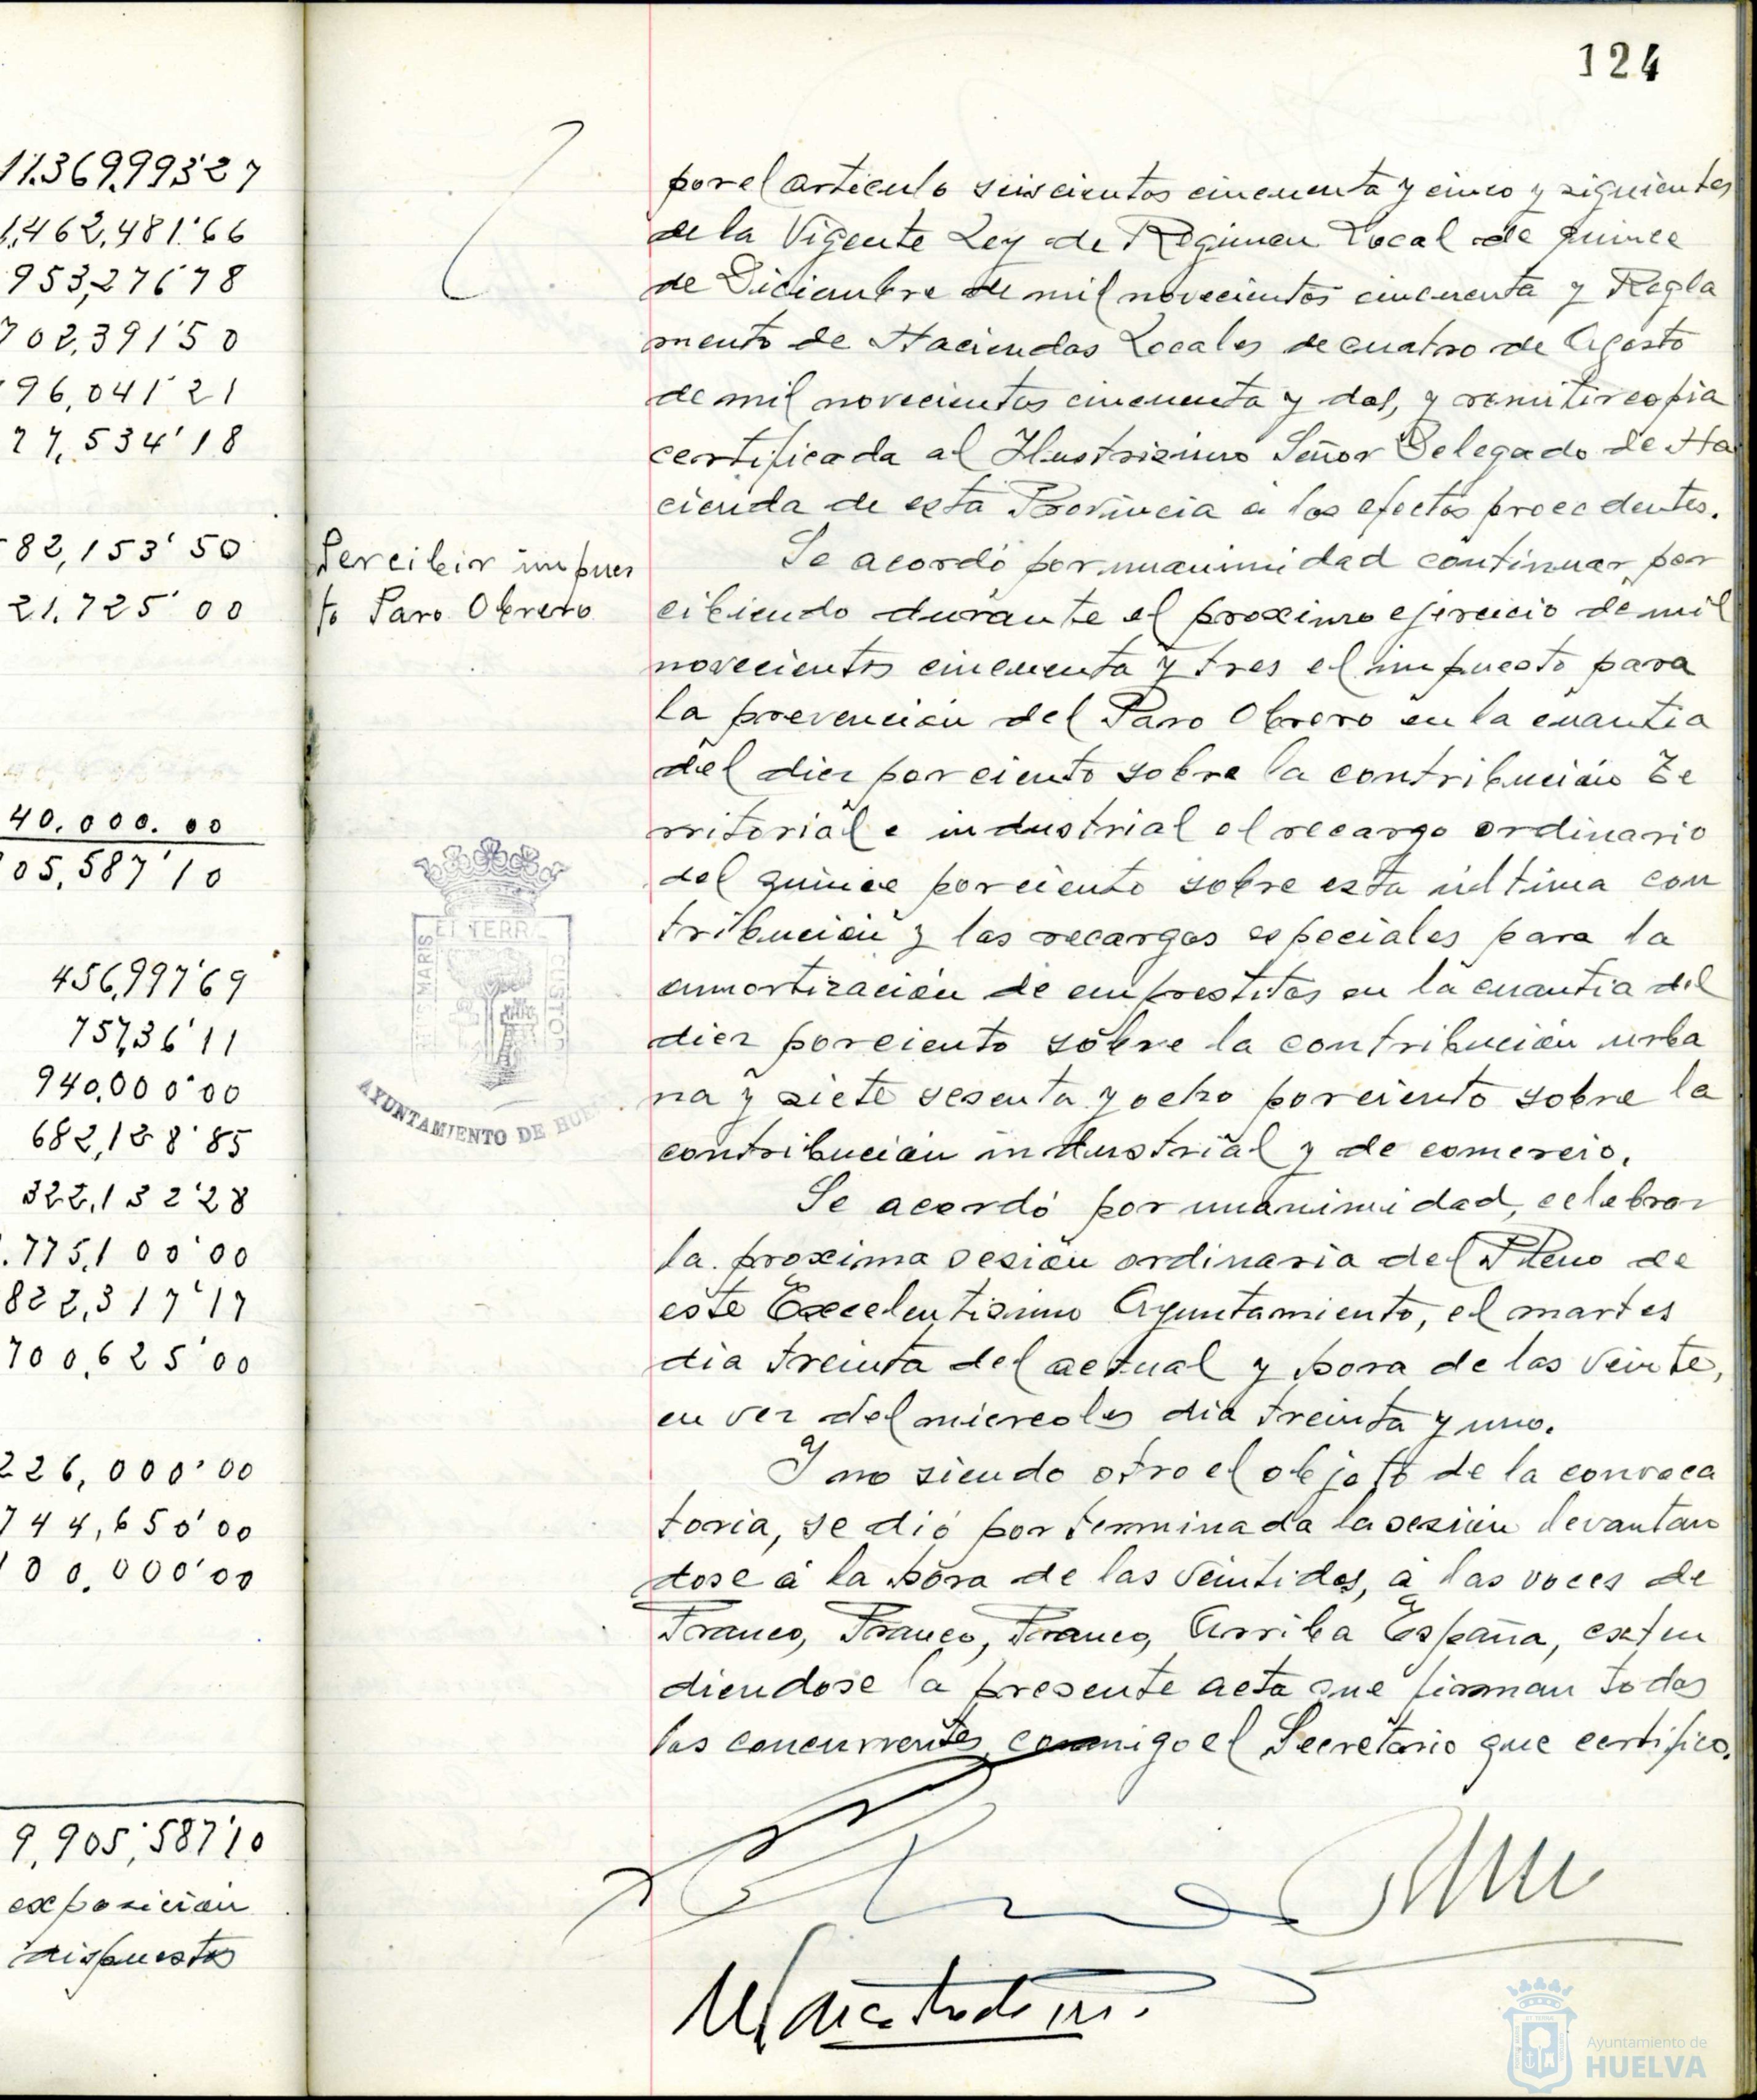 11.369,993'27
1,462,481'66
953,276'78
702,391'50
96,041'21
77,534'18
82,153'50
21.725'00
40.000.00
05,587'10
456,997'69
757,36'11
940,000'00
682,128'85
322,132'28
.775,100'00
822,317'17
700,625'00
226,000'00
744,650'00
100,000'00
9,905,587'10
exposición
dispuestos
124
por el articulo seiscientos cincuenta y cinco y siguientes
de la Vigente Ley de Regimen Local de quince
de Diciembre de mil novecientos cincuenta y Regla
mento de Haciendas Locales de cuatro de Agosto
de mil novecientos cincuenta y dos, y remitir copia
certificada al Ilustrisimo Señor Delegado de Ha
cienda de esta Provincia a los efectos procedentes.
Percibir impues
to Paro Obrero
Se acordó por unanimidad continuar per
cibiendo durante el proximo ejercicio de mil
novecientos cincuenta y tres el impuesto para
la prevencion del Paro Obrero en la cuantia
del diez por ciento sobre la contribución Te
rritorial e industrial el recargo ordinario
del quince por ciento sobre esta última con
tribución y los recargos especiales para la
amortización de emprestitos en la cuantia del
diez por ciento sobre la contribución urba
na y siete sesenta y ocho por ciento sobre la
contribución industrial y de comercio.
Se acordó por unanimidad, celebrar
la proxima sesión ordinaria del Pleno de
este Excelentisimo Ayuntamiento, el martes
dia treinta del actual y hora de las veinte,
en vez del miercoles dia treinta y uno.
Y no siendo otro el objeto de la convoca
toria, se dió por terminada la sesión levantan
dose á la hora de las veintidos, á las voces de
Franco, Franco, Franco, Arriba España, exten
diendose la presente acta que firman todos
los concurrentes conmigo el Secretario que certifico.
AYUNTAMIENTO DE HUELVA
Ayuntamiento de
HUELVA